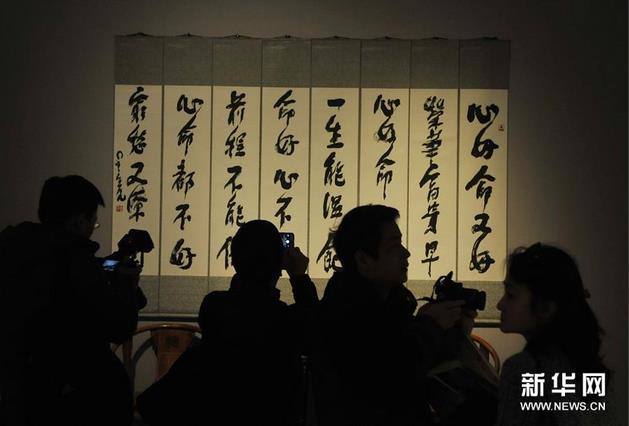 心好命又好
榮華富貴早
心好命
一生能溫飽
命好心不
前程不能保
心命都不好
窮愁又潦
新华网
WWW.NEWS.CN